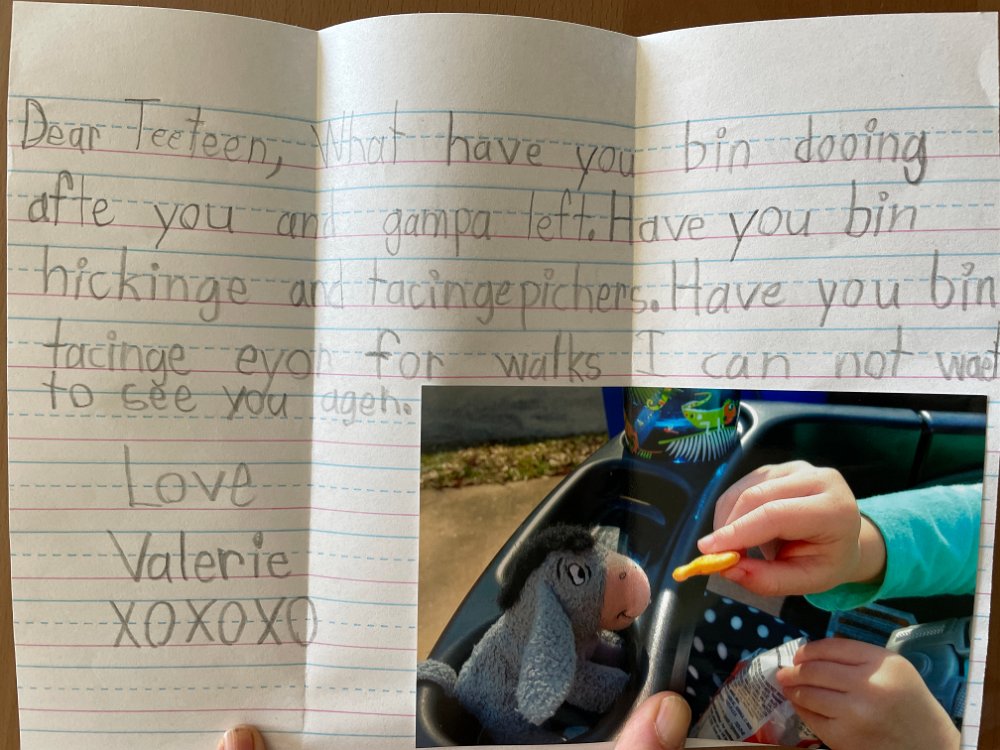 Dear Teeteen, What have you bin dooing
afte you and gampa left. Have you bin
hickinge and tacinge pichers. Have you bin
tacinge eyor for walks I can not waet
to see you agen.
Love
Valerie
XOXOXO